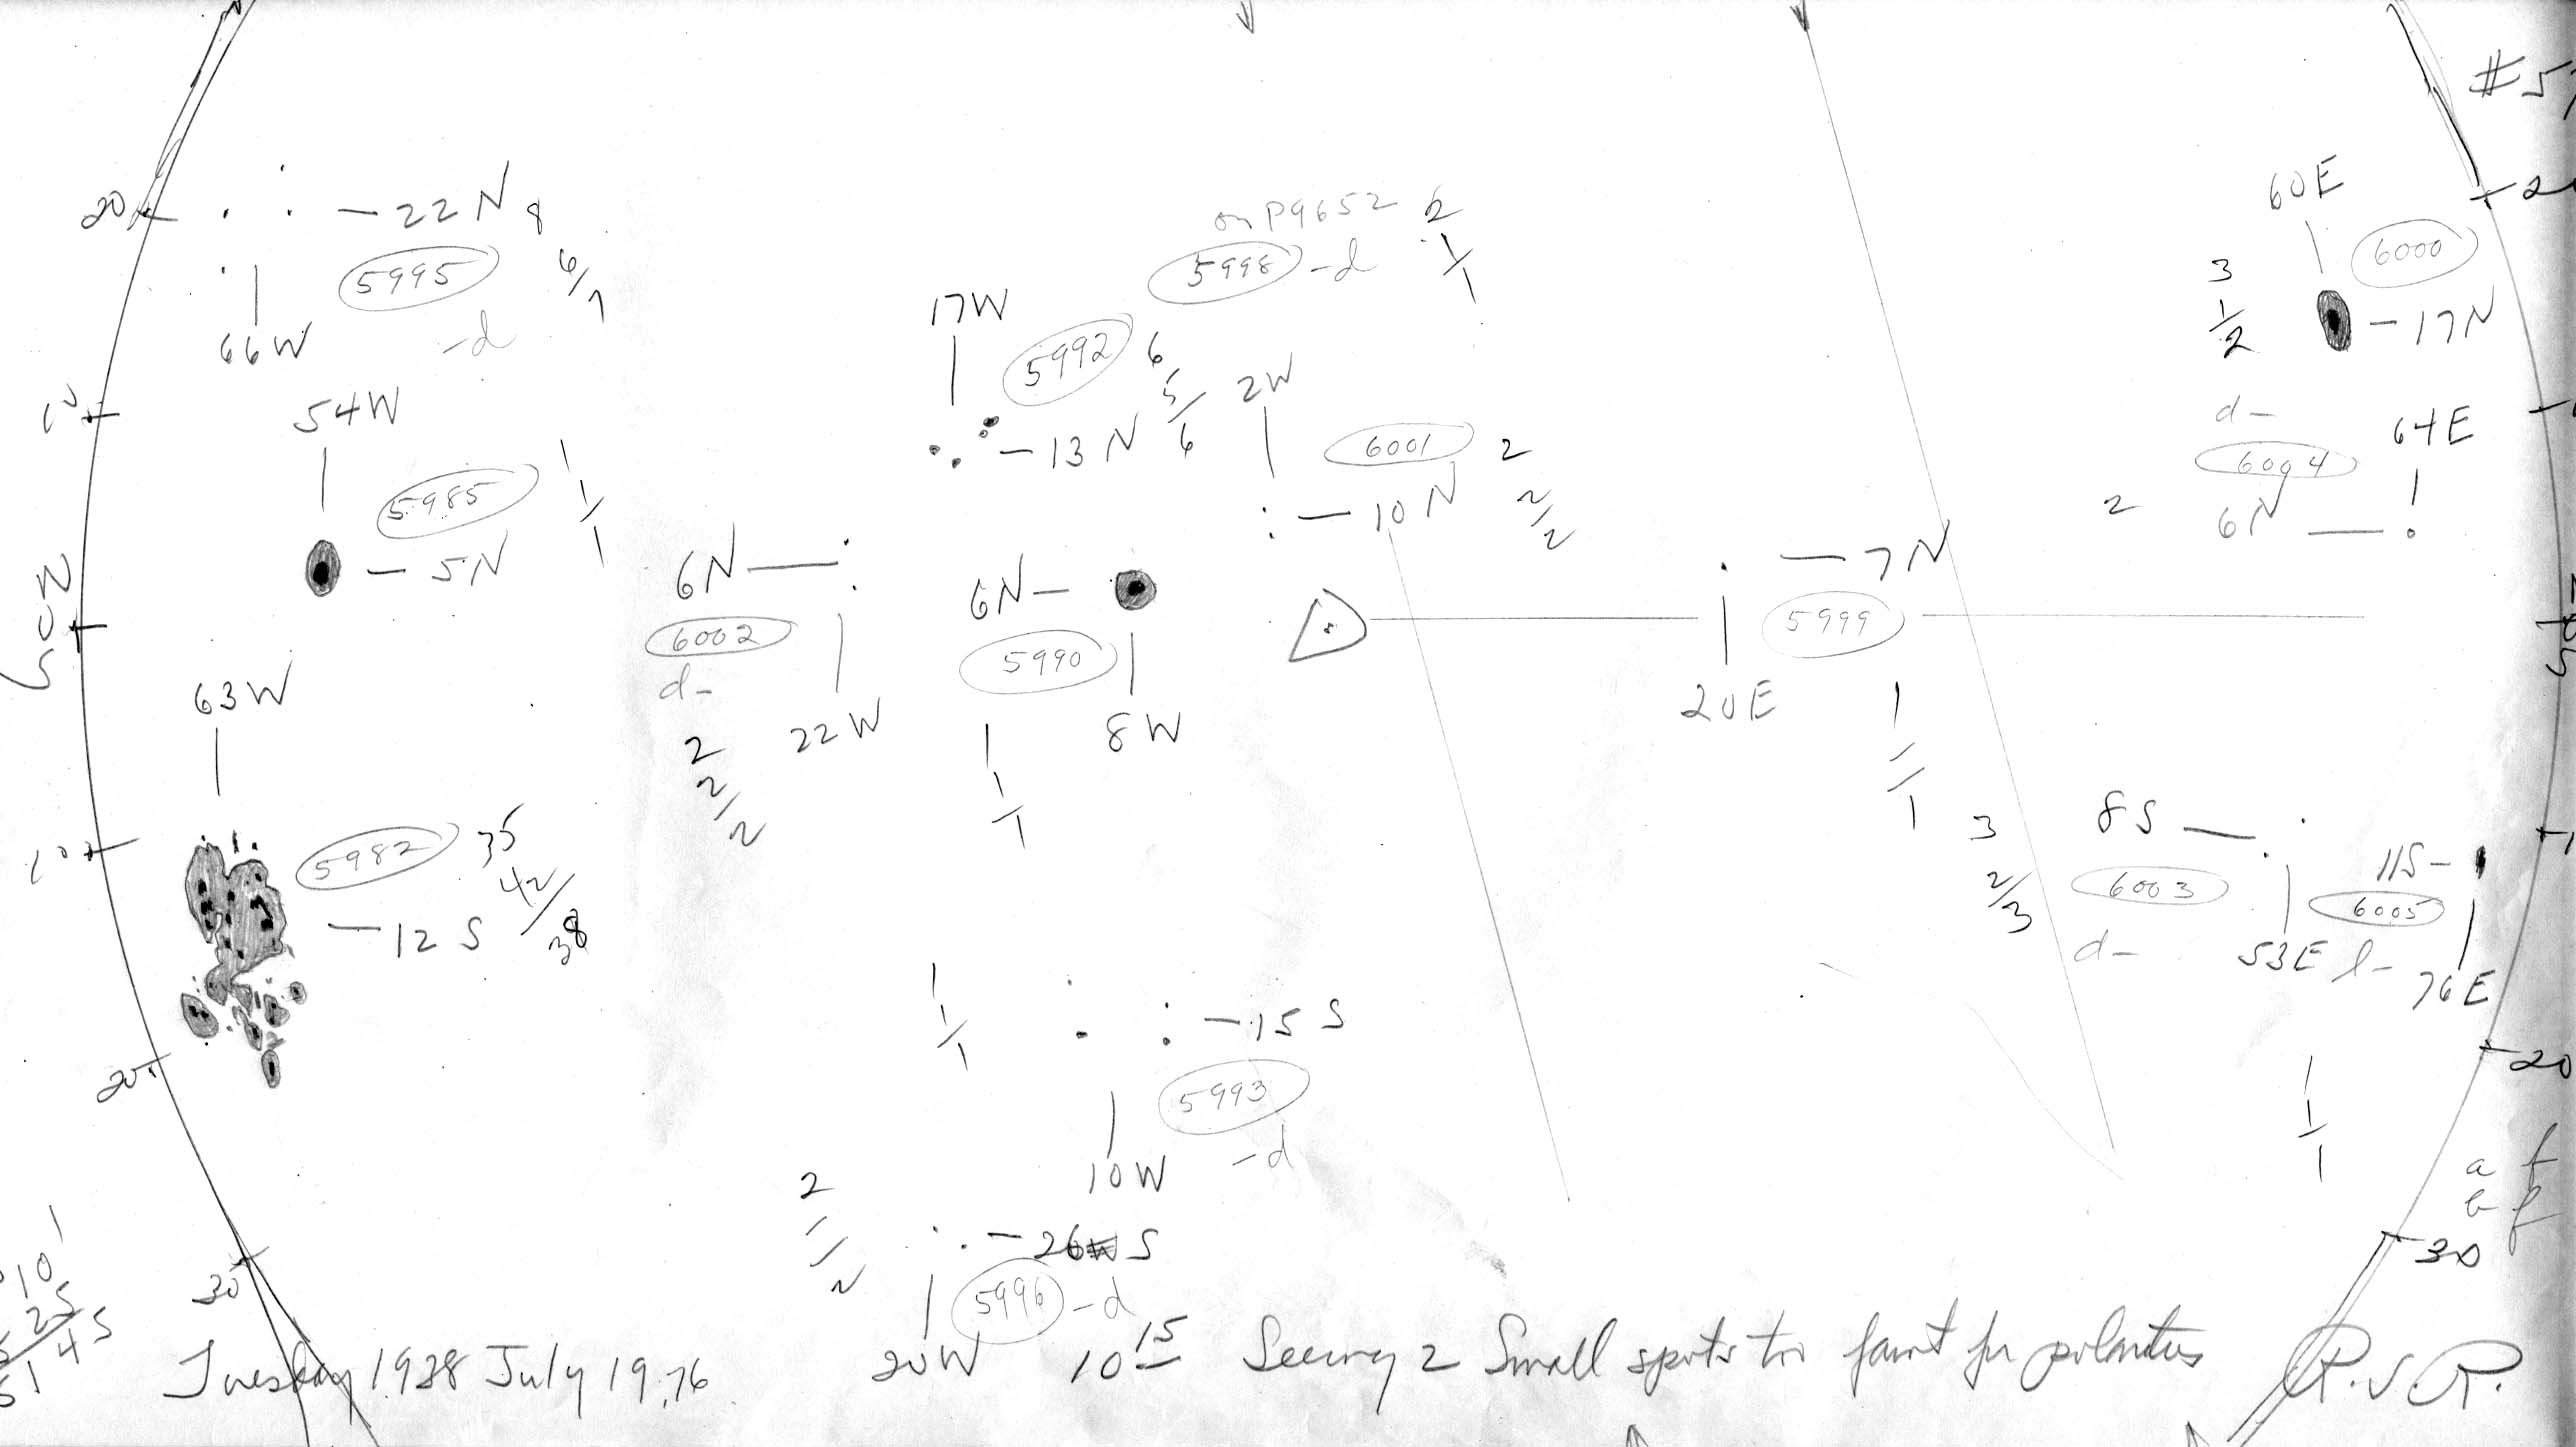 #5
20
-22 N 8
5995
6/7
66W
-d
on P9652 2
5998 -d
1/1
60E
6000
3
1/2
-17N
20
10
54W
5985
1
1/1
-5N
17W
5992
6
5/6
-13 N
2W
6001
2
2/2
-10 N
d-
64E
6004
2
6N
6N
6002
d-
2
2/2
22W
6N-
5990
8W
1
1/1
-7N
5999
20E
1
1/1
63W
10
5982
35
42/38
-12 S
3
2/3
8S
6003
d-
53E
11S-
6005
l-
76E
1
1/1
-15 S
5993
10W
-d
20
20
1
1/1
a f
b f
2
1/2
-26 S
5996 -d
20W
30
30
10
25
45
51
Tuesday 1938 July 19.76
10 15 Seeing 2 Small spots too faint for polarities
R.S.R.